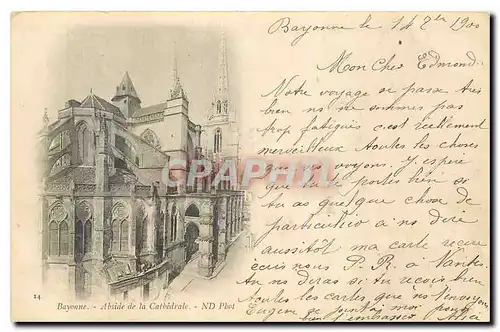 Bayonne le 14 7bre 1900
Mon Cher Edmond.
Notre voyage si passe très
bien ns ne sommes pas
trop fatigués c'est réellement
merveilleux toutes les choses
que ns voyons. J'espère
que tu te portes bien si
tu as quelque chose de
particulier a ns dire
aussitôt ma carte reçue
écris nous P. R. à Nantes.
tu ns diras si tu reçois bien
toutes les cartes que ns envoyons
Eugène se joint à moi pour
bien t'embrasser Alice
CARTE-PRIX
14
Bayonne. - Abside de la Cathédrale. - ND Phot